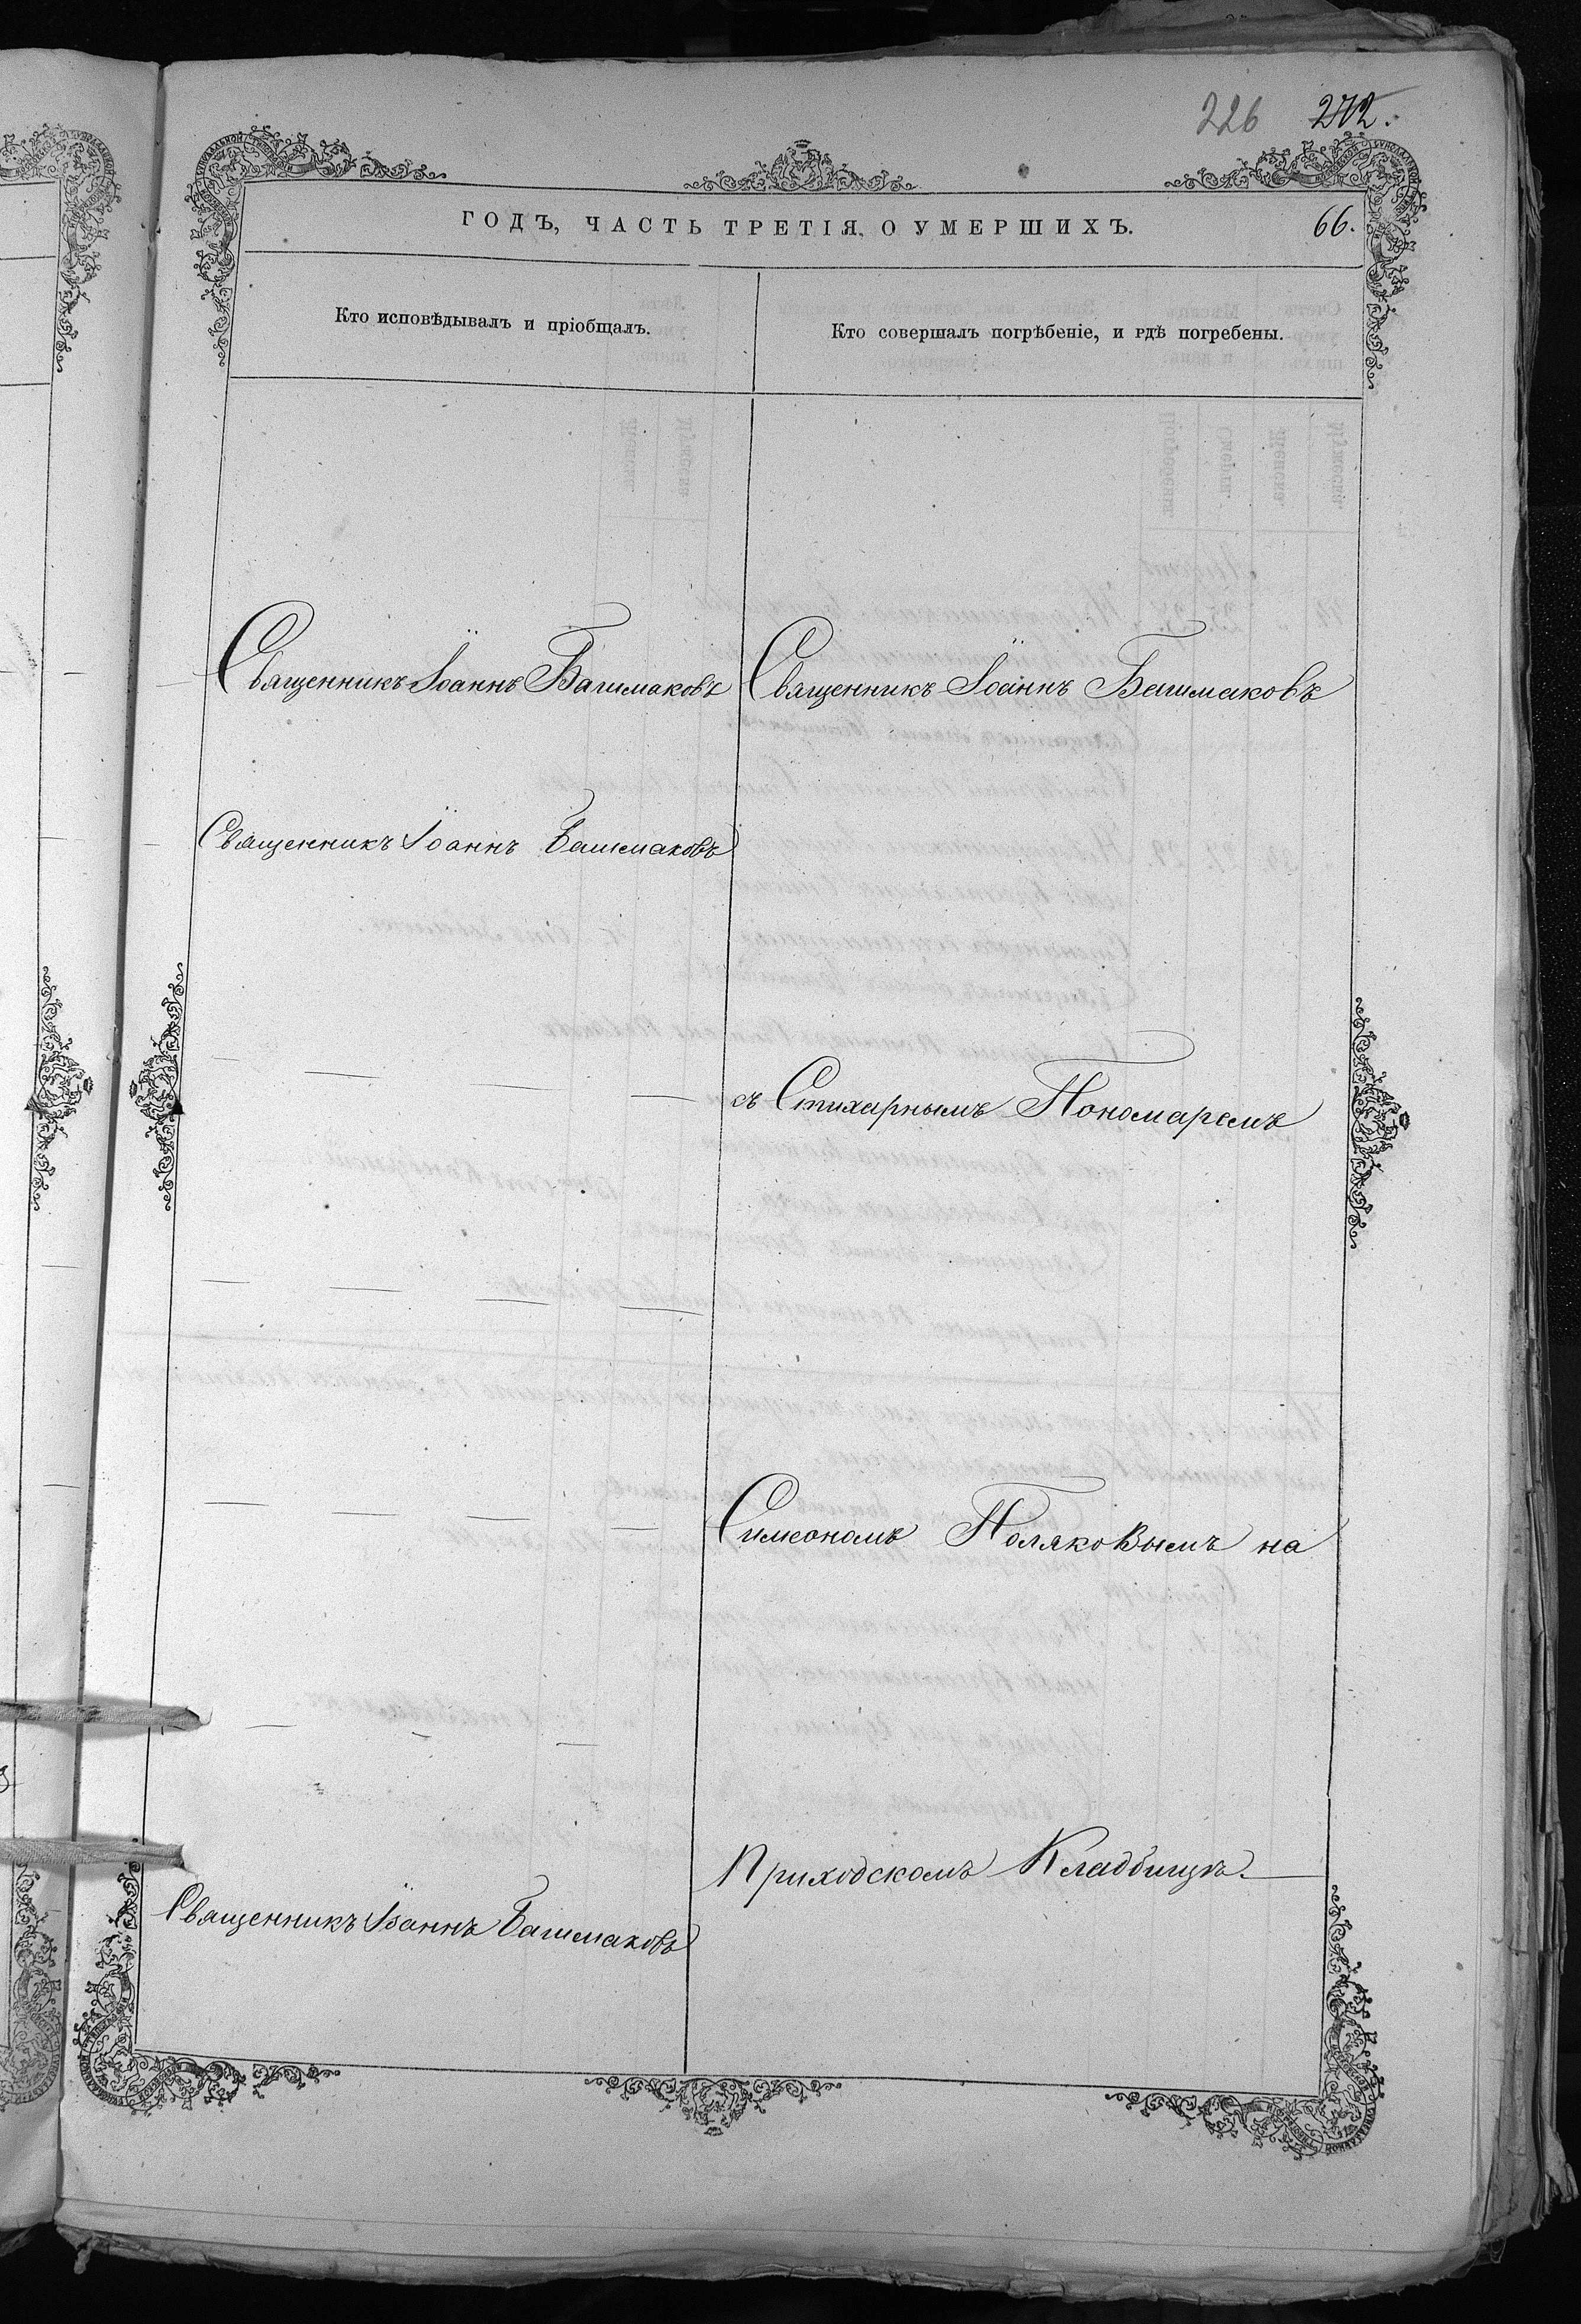 226 272.
ГОДЪ, ЧАСТЬ ТРЕТІЯ, О УМЕРШИХЪ.
66.
Кто исповѣдывалъ и пріобщалъ.
Кто совершалъ погрѣбеніе, и гдѣ погребены.
Священникъ Іоаннъ Башмаковъ
Священникъ Іоаннъ Башмаковъ
Священникъ Іоаннъ Башмаковъ
съ Стихарнымъ Пономаремъ
Симеономъ Поляковымъ на
Приходскомъ Кладбищѣ.
Священникъ Іоаннъ Башмаковъ